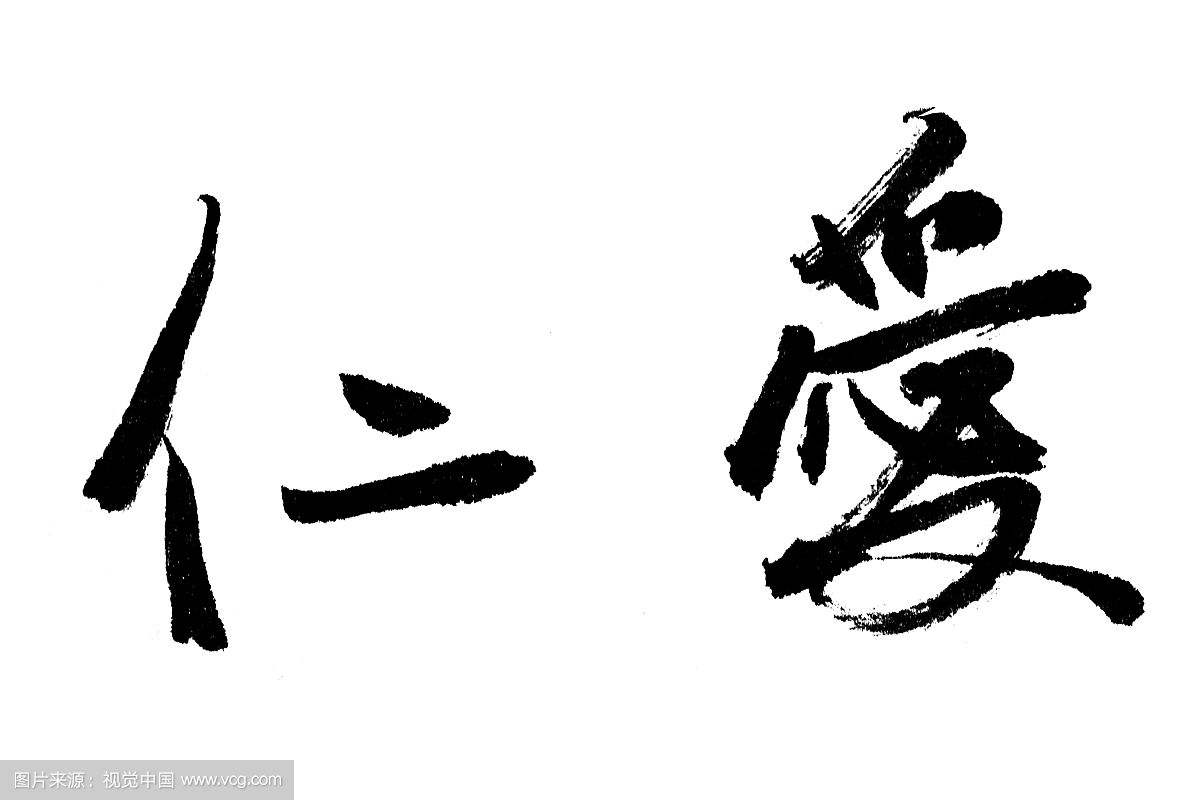 仁愛
图片来源：视觉中国 www.vcg.com